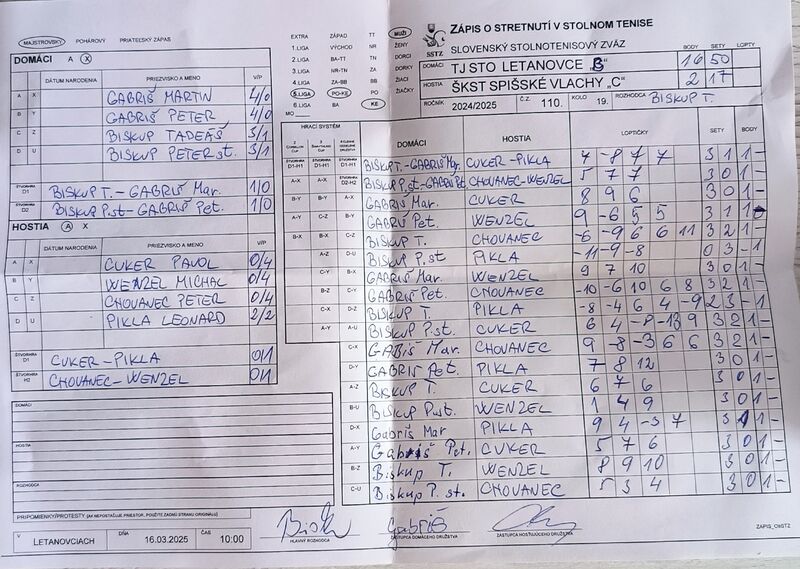 MAJSTROVSKÝ POHÁROVÝ PRIATEĽSKÝ ZÁPAS
DOMÁCI A X
DÁTUM NARODENIA PRIEZVISKO A MENO V/P
A X GABRIŠ MARTIN 4/0
B Y GABRIŠ PETER 4/0
C Z BISKUP TADEÁŠ 3/1
D U BISKUP PETER st. 3/1
ŠTVORHRA D1 BISKUP T.-GABRIŠ Mar. 1/0
ŠTVORHRA D2 BISKUP P.st-GABRIŠ Pet. 1/0
HOSTIA A X
DÁTUM NARODENIA PRIEZVISKO A MENO V/P
A X CUKER PAVOL 0/4
B Y WENZEL MICHAL 0/4
C Z CHOVANEC PETER 0/4
D U PIKLA LEONARD 2/2
ŠTVORHRA D1 CUKER-PIKLA 0/1
ŠTVORHRA H2 CHOVANEC-WENZEL 0/1
DOMÁCI
HOSTIA
ROZHODCA
PRIPOMIENKY/PROTESTY (AK NEPOSTAČUJE PRIESTOR, POUŽITE ZADNÚ STRANU ORIGINÁLU)
V LETANOVCIACH DŇA 16.03.2025 ČAS 10:00
EXTRA ZÁPAD TT MUŽI
1.LIGA VÝCHOD NR ŽENY
2.LIGA BA-TT TN DORCI
3.LIGA NR-TN ZA DORKY
4.LIGA ZA-BB BB ŽIACI
5.LIGA PO-KE PO ŽIAČKY
6.LIGA BA KE
MO
SSTZ
ZÁPIS O STRETNUTÍ V STOLNOM TENISE
SLOVENSKÝ STOLNOTENISOVÝ ZVÄZ
BODY SETY LOPTY
DOMÁCI TJ STO LETANOVCE „B" 16 50
HOSTIA ŠKST SPIŠSKÉ VLACHY „C" 2 17
ROČNÍK 2024/2025 Č.Z. 110. KOLO 19. ROZHODCA BISKUP T.
HRACÍ SYSTÉM
DOMÁCI HOSTIA LOPTIČKY SETY BODY
D1-H1 D1-H1 D1-H1 BISKUP T.-GABRIŠ Mar. CUKER-PIKLA 4 -8 7 7 3 1 1 -
A-X A-X D2-H2 BISKUP P.st-GABRIŠ Pet. CHOVANEC-WENZEL 5 7 7 3 0 1 -
B-Y B-Y A-X GABRIŠ Mar. CUKER 8 9 6 3 0 1 -
A-Y C-Z B-Y GABRIŠ Pet. WENZEL 9 -6 5 5 3 1 1 -
B-X B-X C-Z BISKUP T. CHOVANEC -6 -9 6 6 11 3 2 1 -
A-Z D-U BISKUP P.st PIKLA -11 -9 -8 0 3 - 1
C-Y B-X GABRIŠ Mar. WENZEL 9 7 10 3 0 1 -
B-Z GABRIŠ Pet. CHOVANEC -10 -6 10 6 8 3 2 1 -
C-X D-Z BISKUP T. PIKLA -8 -4 6 4 -9 2 3 - 1
A-Y A-U BISKUP P.st. CUKER 6 4 -8 -13 9 3 2 1 -
C-X GABRIŠ Mar. CHOVANEC 9 -8 -3 6 6 3 2 1 -
D-Y GABRIŠ Pet. PIKLA 7 8 12 3 0 1 -
A-Z BISKUP T. CUKER 6 7 6 3 0 1 -
B-U BISKUP P.st. WENZEL 1 4 9 3 0 1 -
D-X Gabriš Mar PIKLA 9 4 -3 7 3 1 1 -
A-Y Gabriš Pet. CUKER 5 7 6 3 0 1 -
B-Z Biskup T. WENZEL 8 9 10 3 0 1 -
C-U Biskup P. st. CHOVANEC 5 3 4 3 0 1 -
Gabriš
HLAVNÝ ROZHODCA ZÁSTUPCA DOMÁCEHO DRUŽSTVA ZÁSTUPCA HOSŤUJÚCEHO DRUŽSTVA
ZÁPIS_OsSTZ